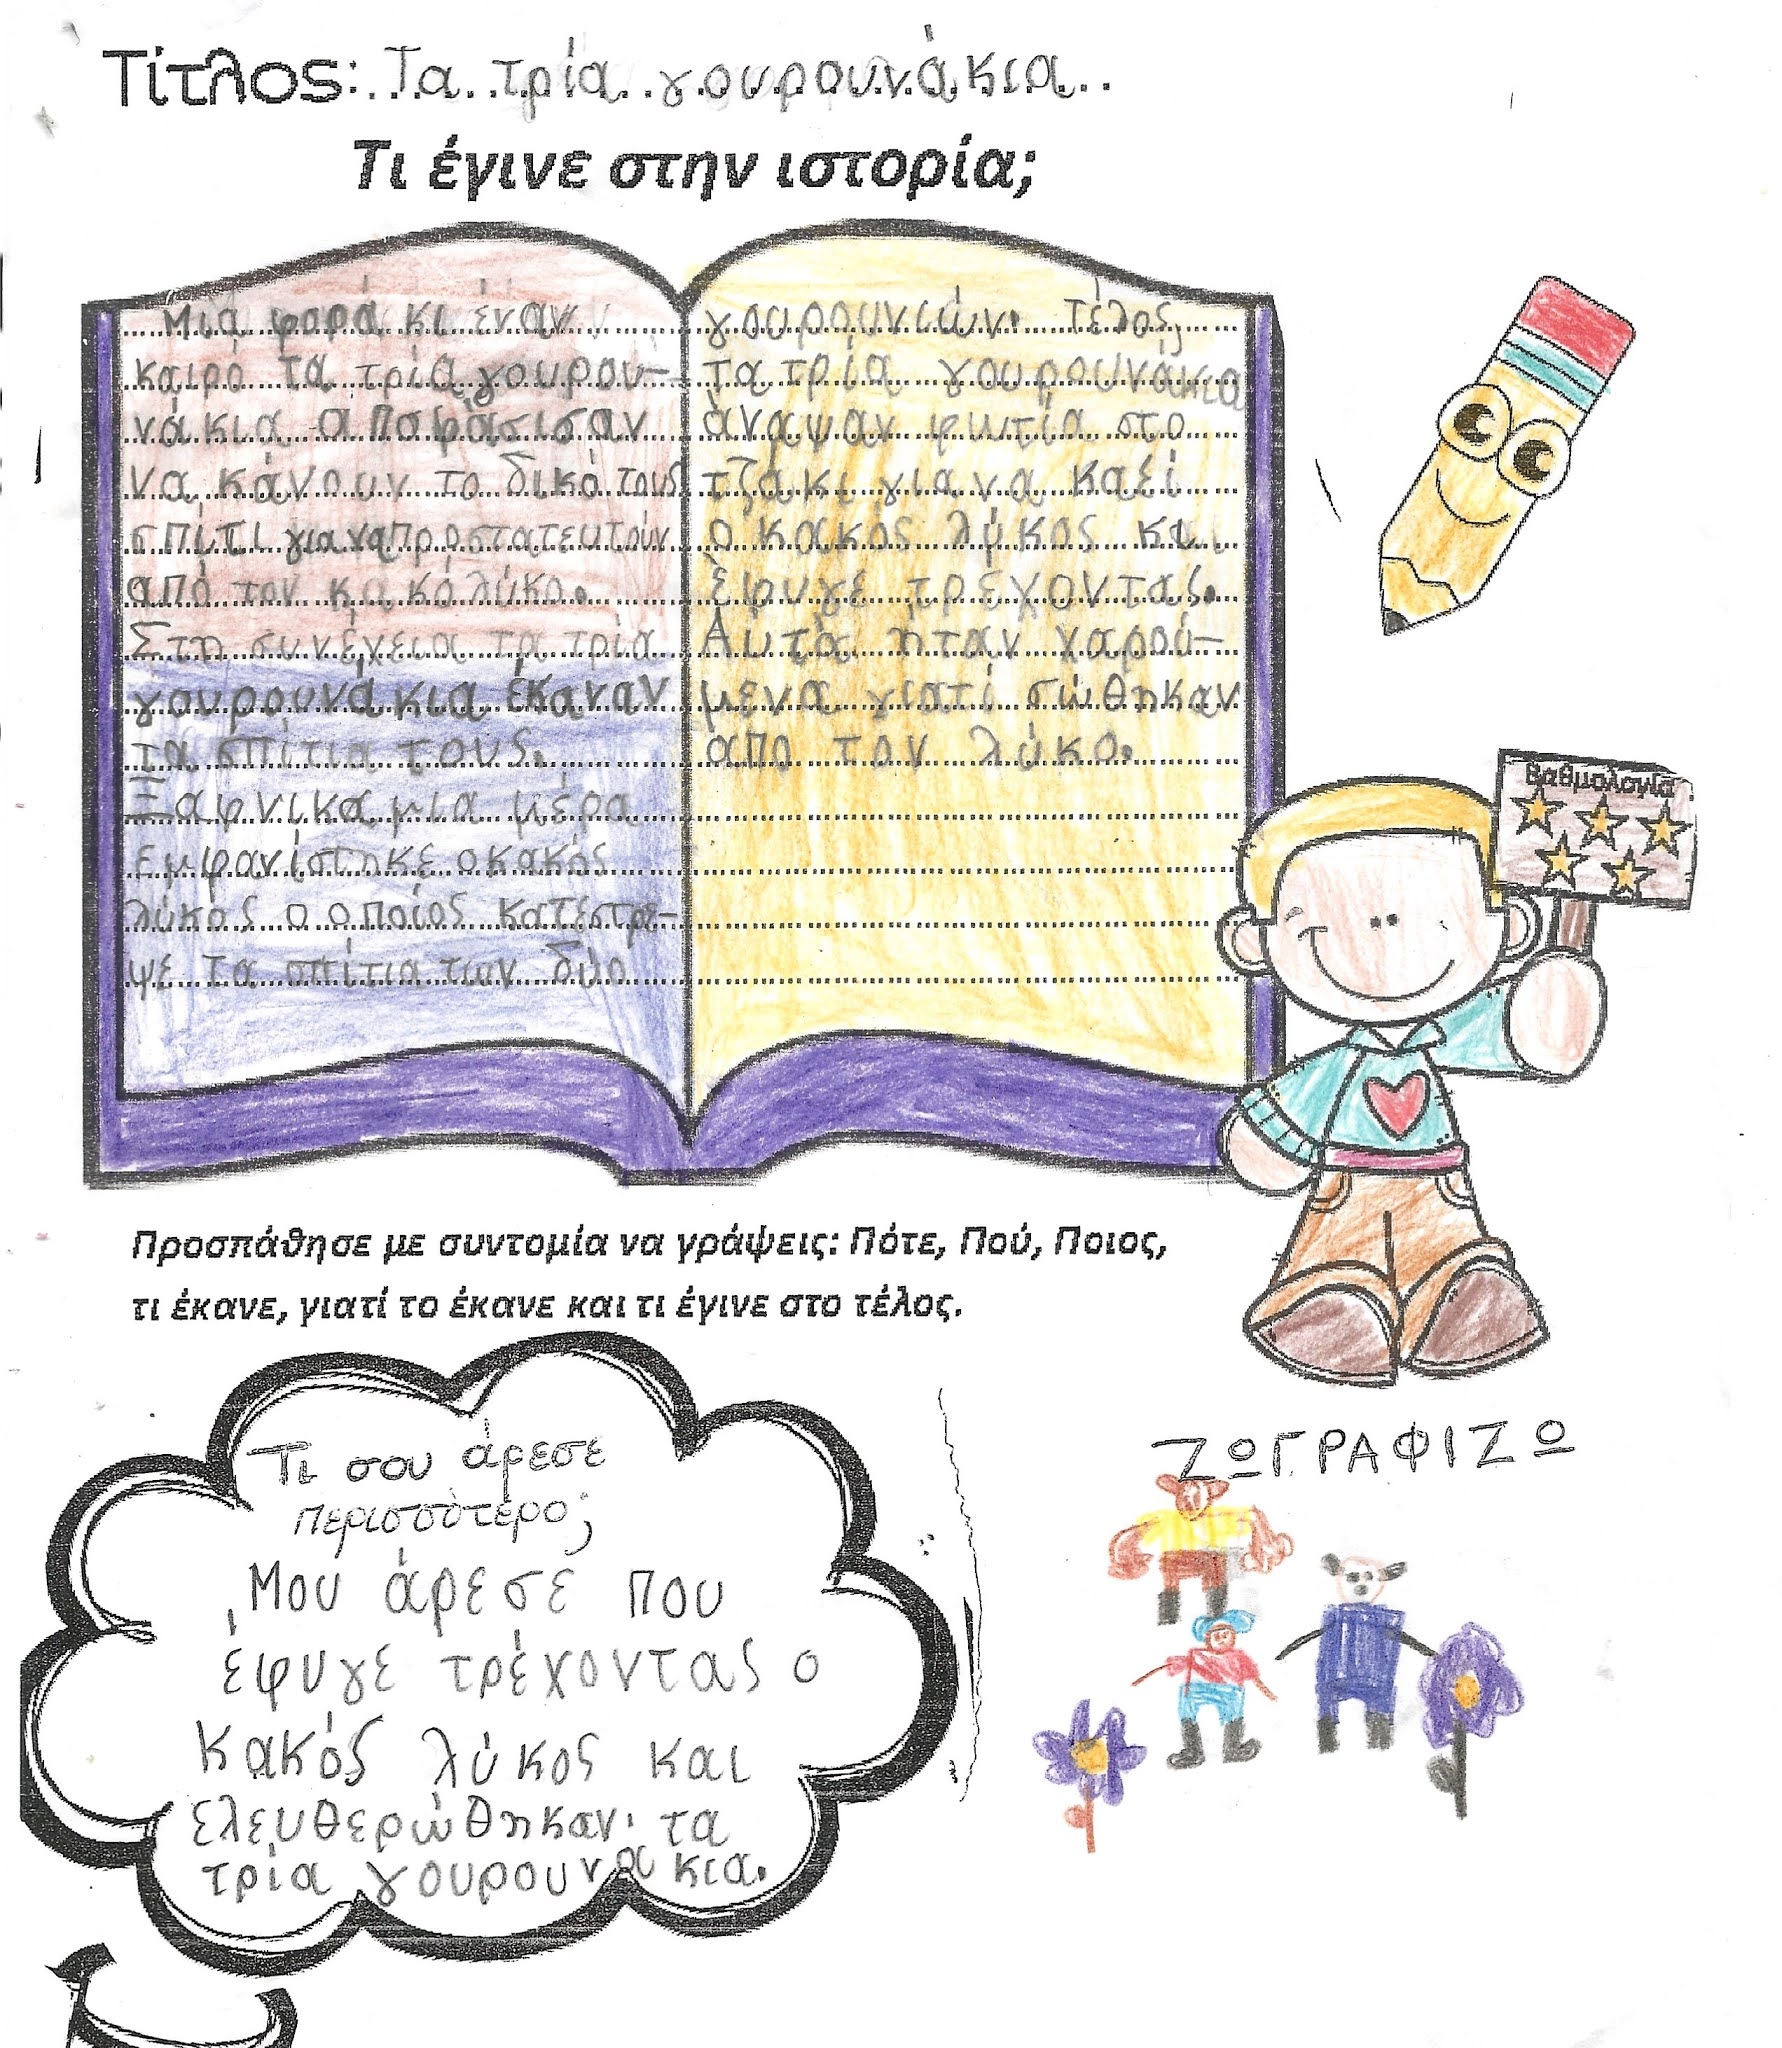 Τίτλος: Τα τρία γουρουνάκια
Τι έγινε στην ιστορία;
Μια φορά κι έναν
καιρό τα τρία γουρου-
νάκια αποφάσισαν
να κάνουν το δικό τους
σπίτι για να προστατευτούν
από τον κακό λύκο.
Στη συνέχεια τα τρία
γουρουνάκια έκαναν
τα σπίτια τους.
Ξαφνικα μια μέρα
εμφανίστηκε ο κακός
λύκος ο οποίος κατέστρε-
ψε τα σπίτια των δύο
γουρουνιών. Τέλος,
τα τρία γουρουνάκια
άναψαν φωτία στο
τζάκι για να καεί
ο κακός λύκος κι
έφυγε τρέχοντας.
Αυτά ηταν χαρού-
μενα γιατί σώθηκαν
απο τον λύκο.
Βαθμολογία
Προσπάθησε με συντομία να γράψεις: Πότε, Πού, Ποιος,
τι έκανε, γιατί το έκανε και τι έγινε στο τέλος.
Τι σου άρεσε
περισσότερο;
Μου άρεσε που
έφυγε τρέχοντας ο
κακός λύκος και
ελευθερώθηκαν τα
τρία γουρουνακια.
ΖΩΓΡΑΦΙΖΩ